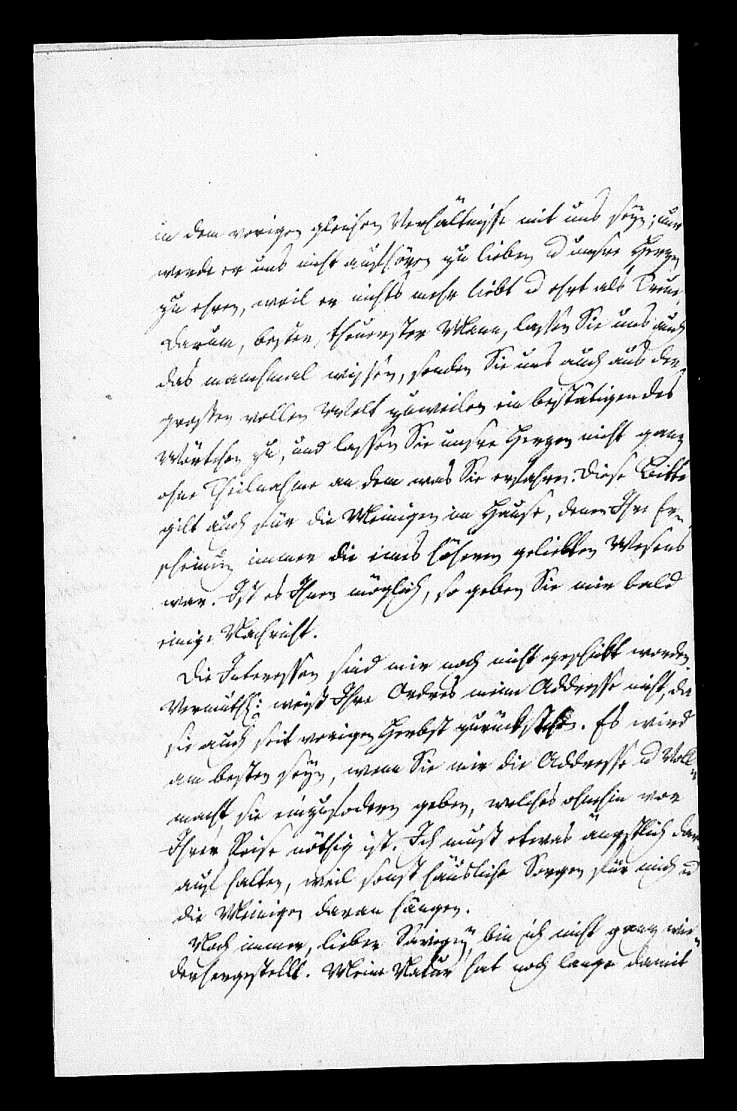 in dem vorigen gleichen Verhältnisse mit uns seyn; nur
werde er uns nicht aufhören zu lieben u unsre Herzen
zu ehren, weil er nichts mehr liebt u ehrt als Treue.
Darum, bester, theuerster Mann, lassen Sie uns auch
das manchmal wissen, senden Sie uns auch aus der
großen vollen Welt zuweilen ein bestätigendes
Wörtchen zu, und lassen Sie unsre Herzen nicht ganz
ohne Theilnahme an dem was Sie erfahren. Diese Bitte
gilt auch für die Meinigen im Hause, denen Ihre Er-
scheinung immer die eines höheren geliebten Wesens
war. Ist es Ihnen möglich, so geben Sie mir bald
einige Nachricht.
Die Interessen sind mir noch nicht geschickt worden.
Vermuthl: weiß Ihre Ordres meine Addresse nicht, da
sie auch seit vorigen Herbst zurückstehen. Es wird
am besten seyn, wenn Sie mir die Addresse u Voll-
macht, sie einzufodern geben, welches ohnehin vor
Ihrer Reise nöthig ist. Ich muß etwas ängstlich dar
auf halten, weil sonst häusliche Sorgen für mich u
die Meinigen daran hängen.
Noch immer, lieber Savigny, bin ich nicht ganz wie-
derhergestellt. Meine Natur hat noch lange damit